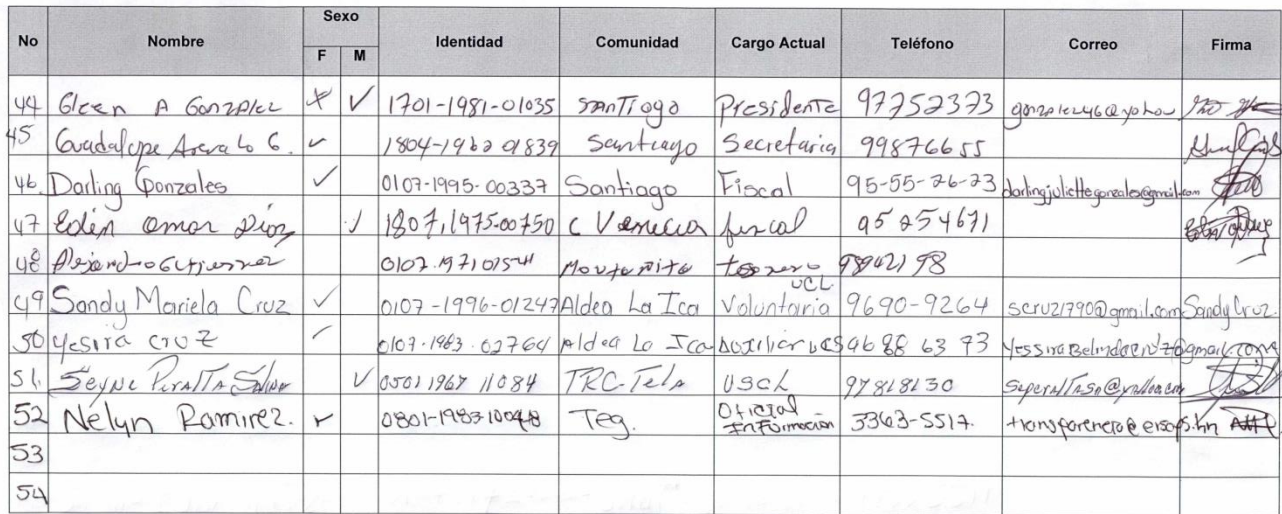 No Nombre Sexo Identidad Comunidad Cargo Actual Teléfono Correo Firma
F M
44 Gleen A Gonzalez ✓ 1701-1981-01035 Santiago Presidente 97752373
45 Guadalupe Arevalo G. ✓ 1804-1962 01839 Santiago Secretaria 99876655
46. Darling Gonzales ✓ 0107-1995-00337 Santiago Fiscal 95-55-26-23 darlingjuliettegonzales@gmail.com
47 Edin Omar Diaz ✓ 1807,1975-00750 C Venecia fiscal 95254671
48 Alejandro Gutierrez Montevista tesorero
49 Sandy Mariela Cruz ✓ 0107-1996-01247 Aldea La Ica Voluntaria UCL 9690-9264 scruz1790@gmail.com Sandy Cruz
50 Yesira cruz ✓ 0107-1983-02764 Aldea La Ica 96 88 63 93
51. Seyne Peralta ✓ 0501 1967 11084 TRC-Tela USCL 97818130
52 Nelyn Ramirez. ✓ 0801-1983-10048 Teg. Oficial Información 3363-5517.
53
54